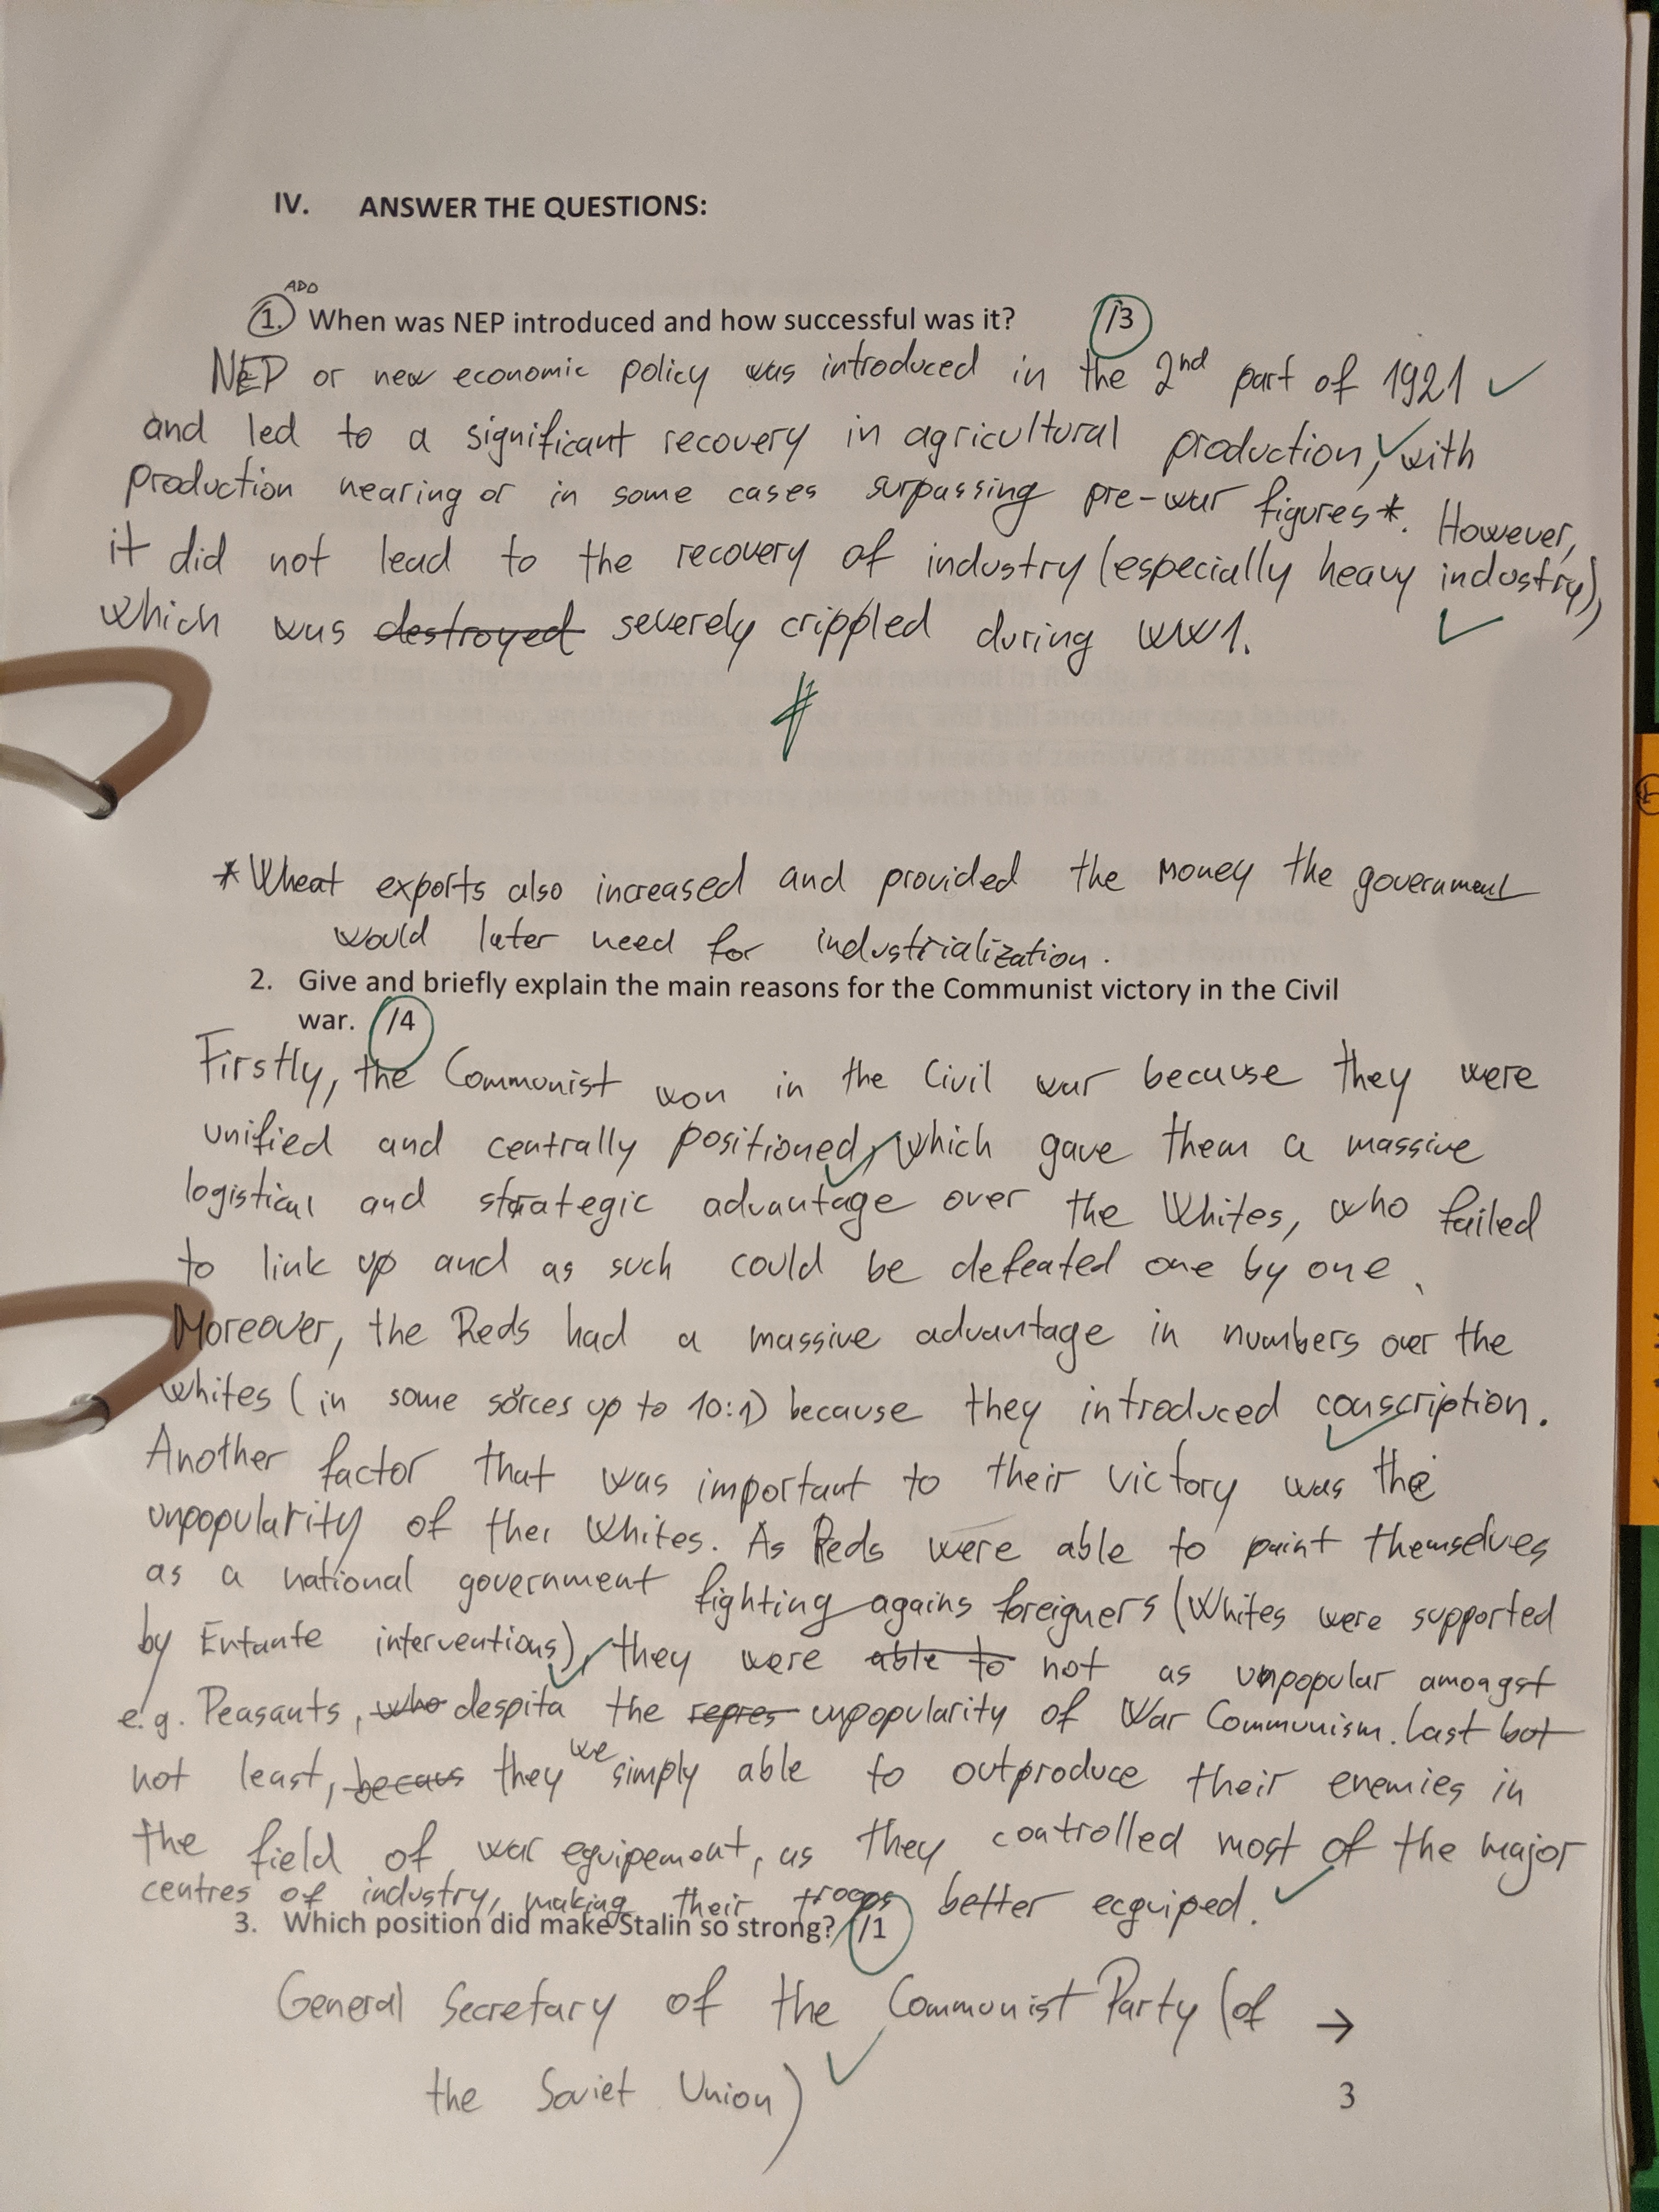 IV. ANSWER THE QUESTIONS:
ADD
1. When was NEP introduced and how successful was it? /3
NEP or new economic policy was introduced in the 2nd part of 1921
and led to a significant recovery in agricultural production, with
production nearing or in some cases surpassing pre-war figures*. However,
it did not lead to the recovery of industry (especially heavy industry),
which was destroyed severely crippled during WW1.
*Wheat exports also increased and provided the money the government
would later need for industrialization.
2. Give and briefly explain the main reasons for the Communist victory in the Civil
war. /4
Firstly, the Communist won in the Civil war because they were
unified and centrally positioned, which gave them a massive
logistical and strategic advantage over the Whites, who failed
to link up and as such could be defeated one by one.
Moreover, the Reds had a massive advantage in numbers over the
Whites (in some sorces up to 10:1) because they introduced conscription.
Another factor that was important to their victory was the
unpopularity of the Whites. As Reds were able to paint themselves
as a national government fighting agains foreigners (Whites were supported
by Entante interventions), they were able to not as unpopular amongst
e.g. Peasants, who despita the repres unpopularity of War Communism. Last but
not least, becaus they we simply able to outproduce their enemies in
the field of war equipement, as they controlled most of the major
centres of industry, making their troops better ecquiped.
3. Which position did make Stalin so strong? /1
General Secretary of the Communist Party (of →
the Soviet Union)
3